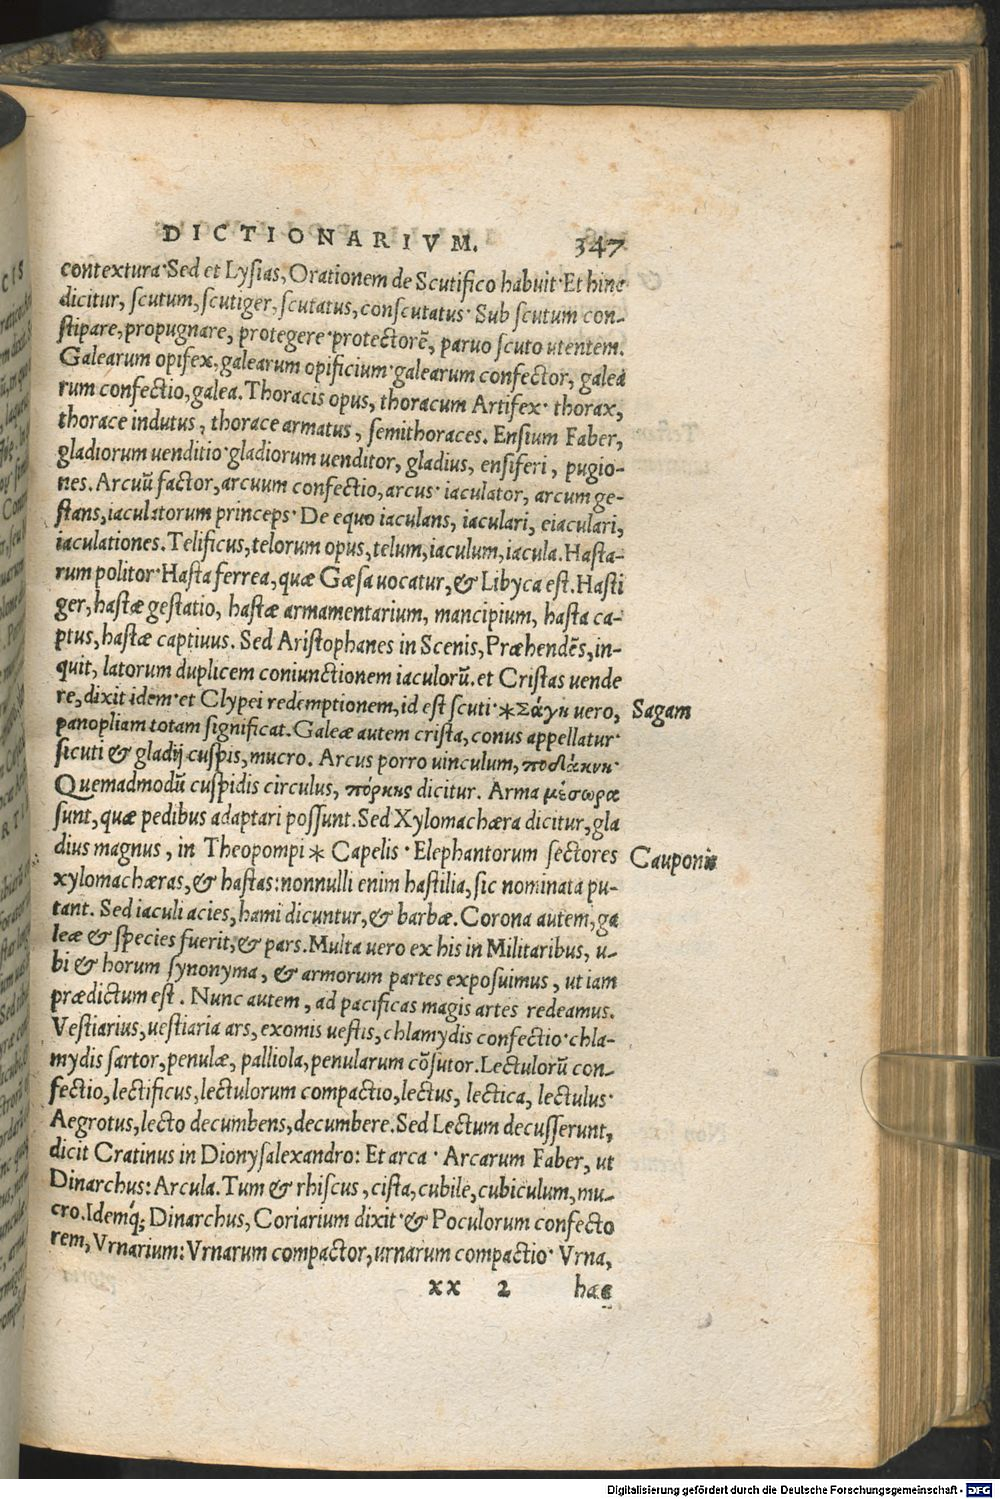 DICTIONARIVM. 347
contextura·Sed et Lysias, Orationem de Scutifico habuit·Et hinc
dicitur, scutum, scutiger, scutatus, conscutatus· Sub scutum con-
stipare, propugnare, protegere·protectorē, paruo scuto utentem.
Galearum opifex, galearum opificium·galearum confector, galea
rum confectio, galea. Thoracis opus, thoracum Artifex· thorax,
thorace indutus, thorace armatus, semithoraces. Ensium Faber,
gladiorum uenditio·gladiorum uenditor, gladius, ensiferi, pugio-
nes. Arcuū factor, arcuum confectio, arcus· iaculator, arcum ge-
stans, iaculatorum princeps· De equo iaculans, iaculari, eiaculari,
iaculationes. Telificus, telorum opus, telum, iaculum, iacula. Hasta-
rum politor·Hasta ferrea, quæ Gæsa uocatur, & Libyca est. Hasti
ger, hastæ gestatio, hastæ armamentarium, mancipium, hasta ca-
ptus, hastæ captiuus. Sed Aristophanes in Scenis, Præhendēs, in-
quit, latorum duplicem coniunctionem iaculorū. et Cristas uende
re, dixit idem·et Clypei redemptionem, id est scuti·*Σάγη uero,
Sagam
panopliam totam significat. Galeæ autem crista, conus appellatur·
sicuti & gladij cuspis, mucro. Arcus porro uinculum,
Quemadmodū cuspidis circulus, πόρκης dicitur. Arma μέσωρα
sunt, quæ pedibus adaptari possunt. Sed Xylomachæra dicitur, gla
dius magnus, in Theopompi * Capelis· Elephantorum sectores
Cauponis
xylomachæras, & hastas: nonnulli enim hastilia, sic nominata pu-
tant. Sed iaculi acies, hami dicuntur, & barbæ. Corona autem, ga
leæ & species fuerit, & pars. Multa uero ex his in Militaribus, u-
bi & horum synonyma, & armorum partes exposuimus, ut iam
prædictum est. Nunc autem, ad pacificas magis artes redeamus.
Vestiarius, uestiaria ars, exomis uestis, chlamydis confectio·chla-
mydis sartor, penulæ, palliola, penularum cōsutor. Lectulorū con-
fectio, lectificus, lectulorum compactio, lectus, lectica, lectulus·
Aegrotus, lecto decumbens, decumbere. Sed Lectum decusserunt,
dicit Cratinus in Dionysalexandro: Et arca· Arcarum Faber, ut
Dinarchus: Arcula. Tum & rhiscus, cista, cubile, cubiculum, mu-
cro. Idemq́; Dinarchus, Coriarium dixit·& Poculorum confecto
rem, Vrnarium: Vrnarum compactor, urnarum compactio· Vrna,
xx 2 hac
Digitalisierung gefördert durch die Deutsche Forschungsgemeinschaft - DFG